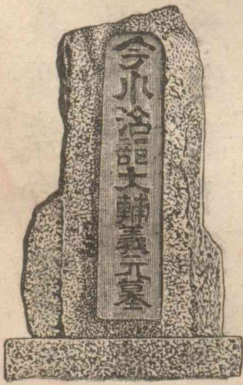 今川治部大輔義元墓